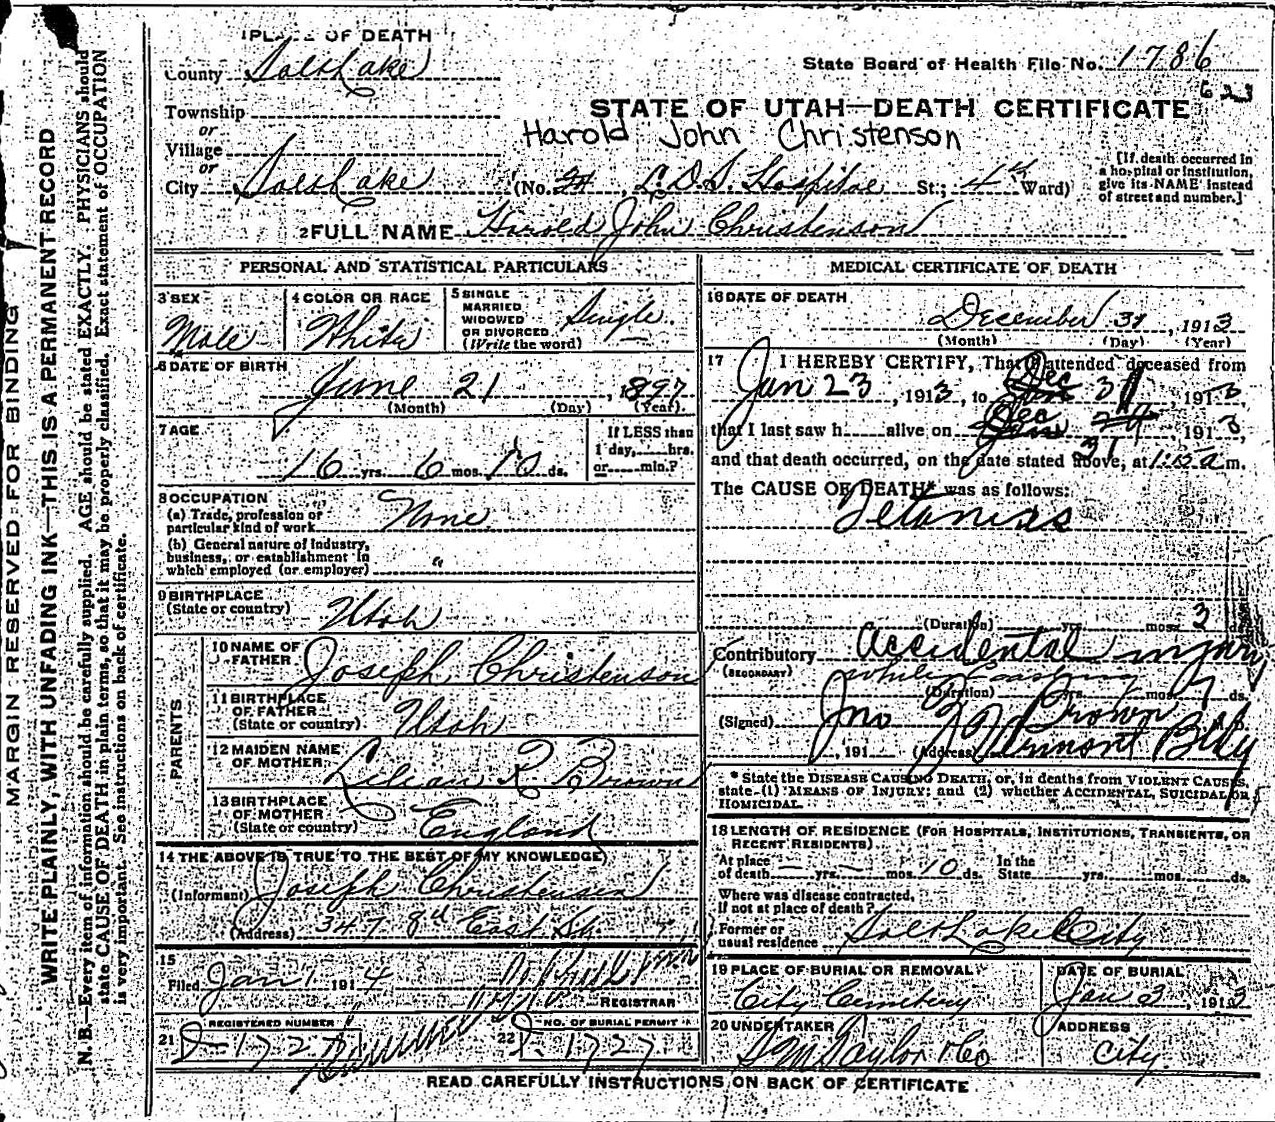 PLACE OF DEATH
County Salt Lake
State Board of Health File No. 1786
623
Township
or
Village
or
City Salt Lake
STATE OF UTAH—DEATH CERTIFICATE
Harold John Christenson
(No. L.D.S. Hospital St.; 4th Ward)
[If death occurred in
a hospital or institution,
give its NAME instead
of street and number.]
2 FULL NAME Harold John Christenson
PERSONAL AND STATISTICAL PARTICULARS
3 SEX
Male
4 COLOR OR RACE
White
5 SINGLE
MARRIED
WIDOWED
OR DIVORCED
(Write the word)
Single
6 DATE OF BIRTH
June 21, 1897
(Month) (Day) (Year)
7 AGE
16 yrs. 6 mos. 10 ds.
If LESS than
1 day, hrs.
or min.?
8 OCCUPATION
(a) Trade, profession or
particular kind of work None
(b) General nature of industry,
business, or establishment in
which employed (or employer) "
9 BIRTHPLACE
(State or country) Utah
PARENTS
10 NAME OF
FATHER Joseph Christenson
11 BIRTHPLACE
OF FATHER
(State or country) Utah
12 MAIDEN NAME
OF MOTHER Lilian R. Brown
13 BIRTHPLACE
OF MOTHER
(State or country) England
14 THE ABOVE IS TRUE TO THE BEST OF MY KNOWLEDGE)
(Informant) Joseph Christensen
(Address) 347 8th East St.
15
Filed Jan 1 1914
REGISTRAR
21 REGISTERED NUMBER
1727
22 NO. OF BURIAL PERMIT
1727
MEDICAL CERTIFICATE OF DEATH
16 DATE OF DEATH
December 31, 1913
(Month) (Day) (Year)
17 I HEREBY CERTIFY, That I attended deceased from
Jun 23, 1913, to Dec 31 1913
that I last saw h alive on Dec 31, 1913,
and that death occurred, on the date stated above, at 1:15 a m.
The CAUSE OF DEATH* was as follows:
Tetanus
(Duration) yrs. mos. 3 ds.
Contributory accidental injury
(SECONDARY) while coasting
(Duration) yrs. mos. 7 ds.
(Signed) Jno Z Brown
, 191 (Address) Vermont Bldg
* State the DISEASE CAUSING DEATH, or, in deaths from VIOLENT CAUSES,
state (1) MEANS OF INJURY; and (2) whether ACCIDENTAL, SUICIDAL OR
HOMICIDAL.
18 LENGTH OF RESIDENCE (FOR HOSPITALS, INSTITUTIONS, TRANSIENTS, OR
RECENT RESIDENTS)
At place
of death — yrs. — mos. 10 ds.
In the
State yrs. mos. ds.
Where was disease contracted,
If not at place of death?
Former or
usual residence Salt Lake City
19 PLACE OF BURIAL OR REMOVAL
City Cemetery
DATE OF BURIAL
Jan 3, 1913
20 UNDERTAKER
S M Taylor & Co
ADDRESS
City
READ CAREFULLY INSTRUCTIONS ON BACK OF CERTIFICATE.
MARGIN RESERVED FOR BINDING
WRITE PLAINLY, WITH UNFADING INK—THIS IS A PERMANENT RECORD
N. B.—Every item of information should be carefully supplied. AGE should be stated EXACTLY. PHYSICIANS should
state CAUSE OF DEATH in plain terms, so that it may be properly classified. Exact statement of OCCUPATION
is very important. See instructions on back of certificate.